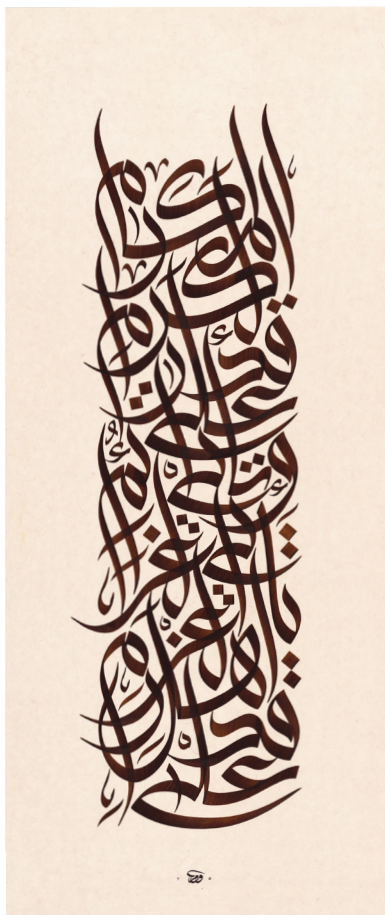 على قدر أهل العزم تأتي العزائم
وتأتي على قدر الكرام المكارم